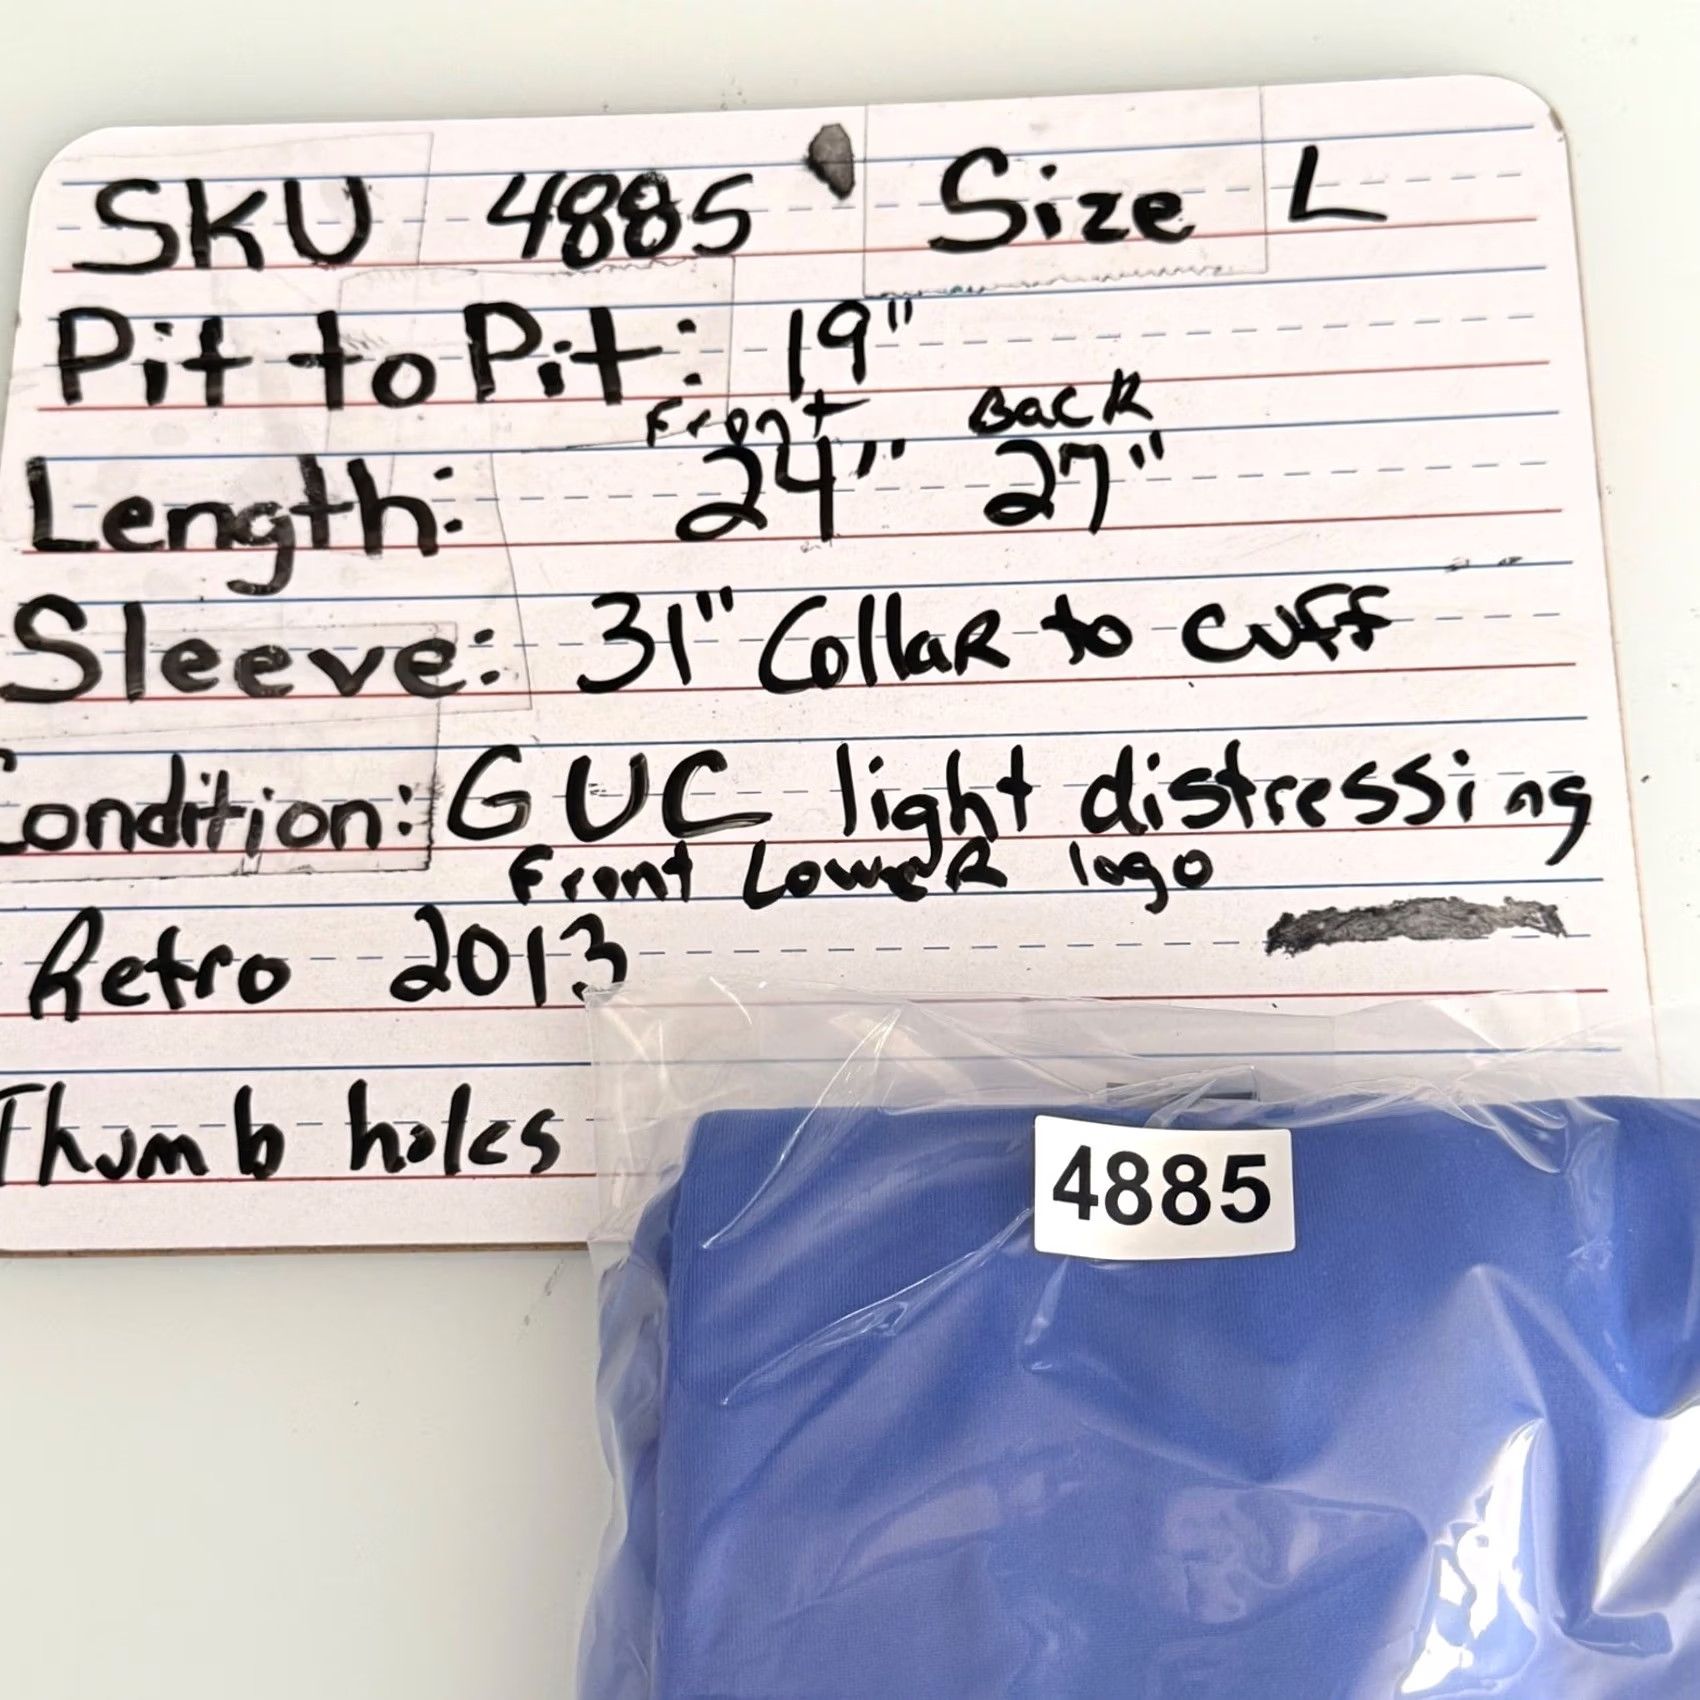 SKU 4885 Size L
Pit to Pit: 19"
Front Back
Length: 24" 27"
Sleeve: 31" Collar to cuff
Condition: GUC light distressing
Front Lower logo
Retro 2013
Thumb holes
4885